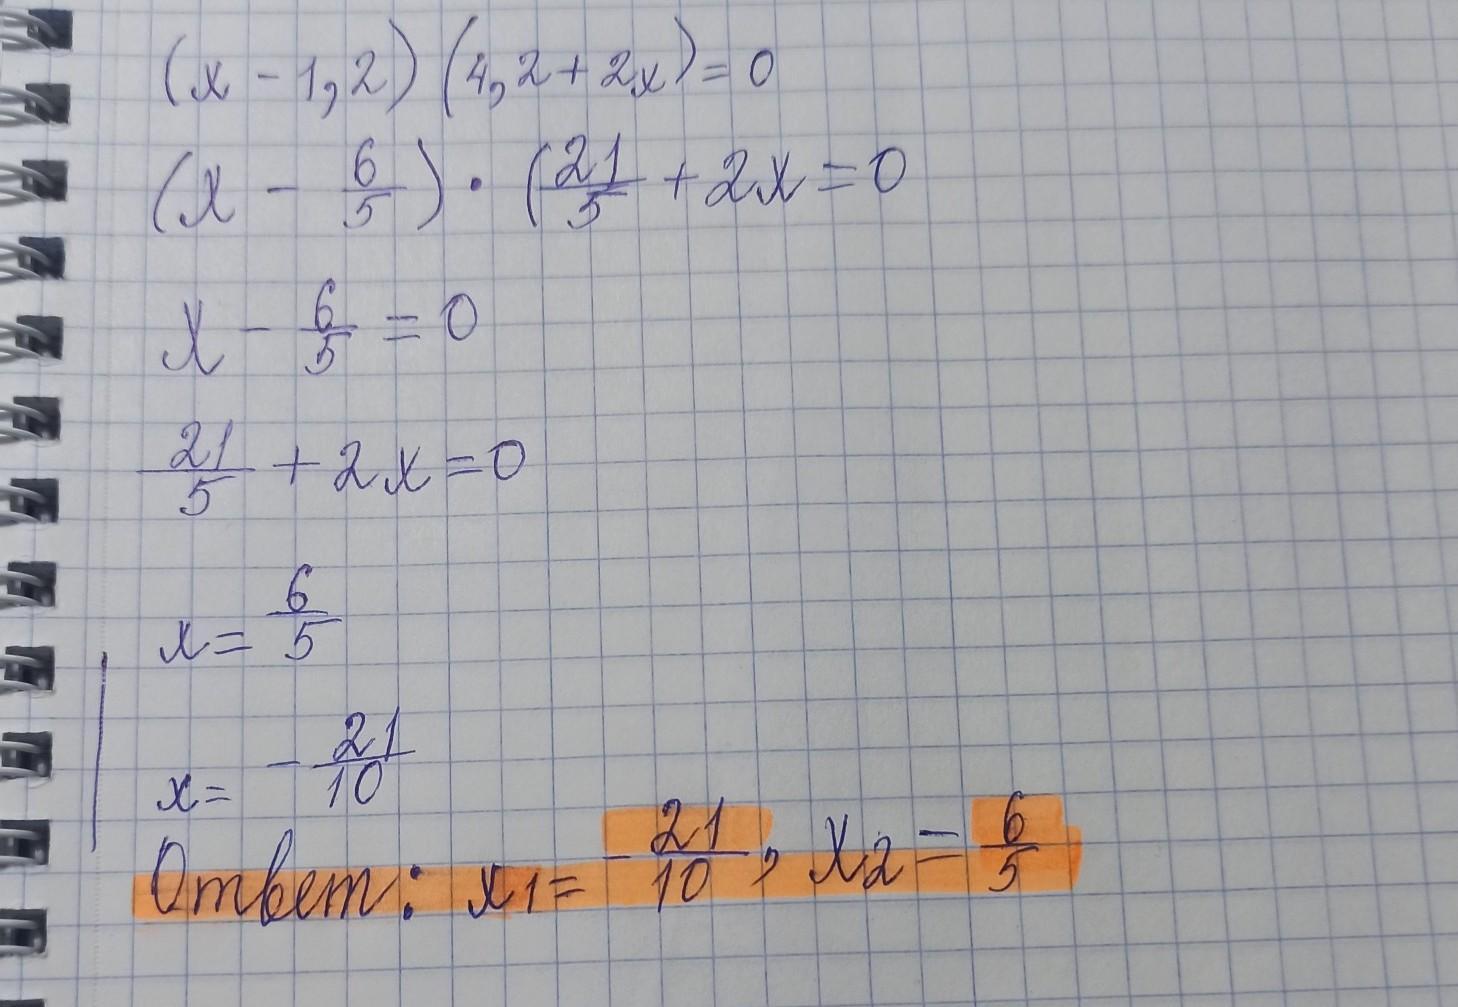 (x - 1,2) (4,2 + 2x) = 0
(x - 6/5) · (21/5 + 2x = 0
x - 6/5 = 0
21/5 + 2x = 0
x = 6/5
x = - 21/10
Ответ: x1 = - 21/10, x2 = 6/5